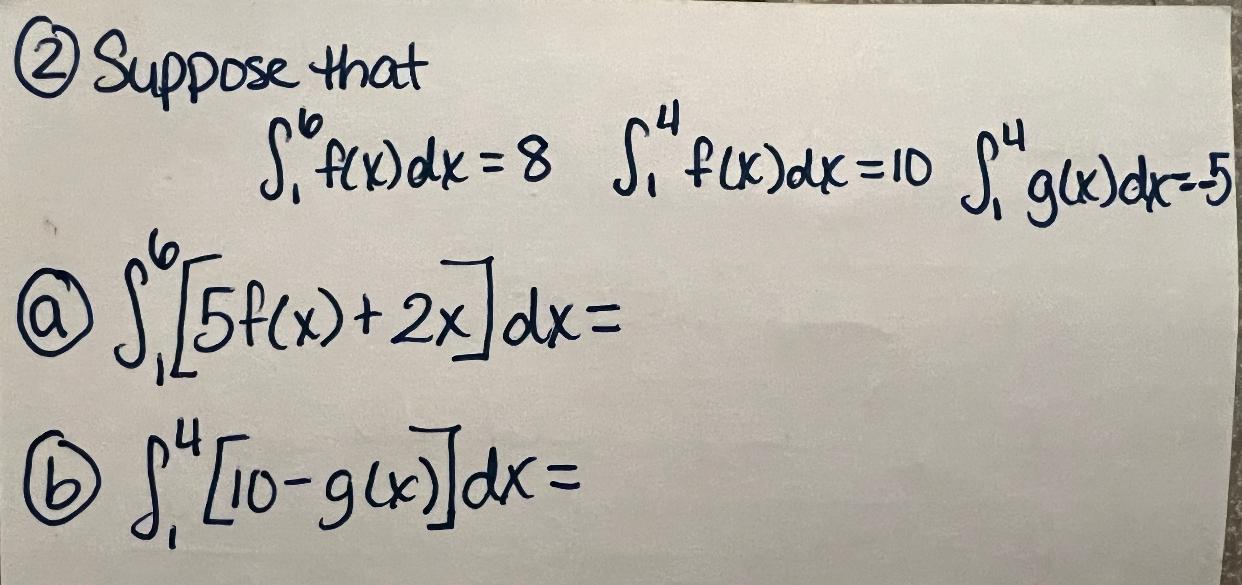 ② Suppose that
∫₁⁶ f(x)dx = 8 ∫₁⁴ f(x)dx = 10 ∫₁⁴ g(x)dx = -5
ⓐ ∫₁⁶ [5f(x) + 2x] dx =
ⓑ ∫₁⁴ [10 - g(x)] dx =